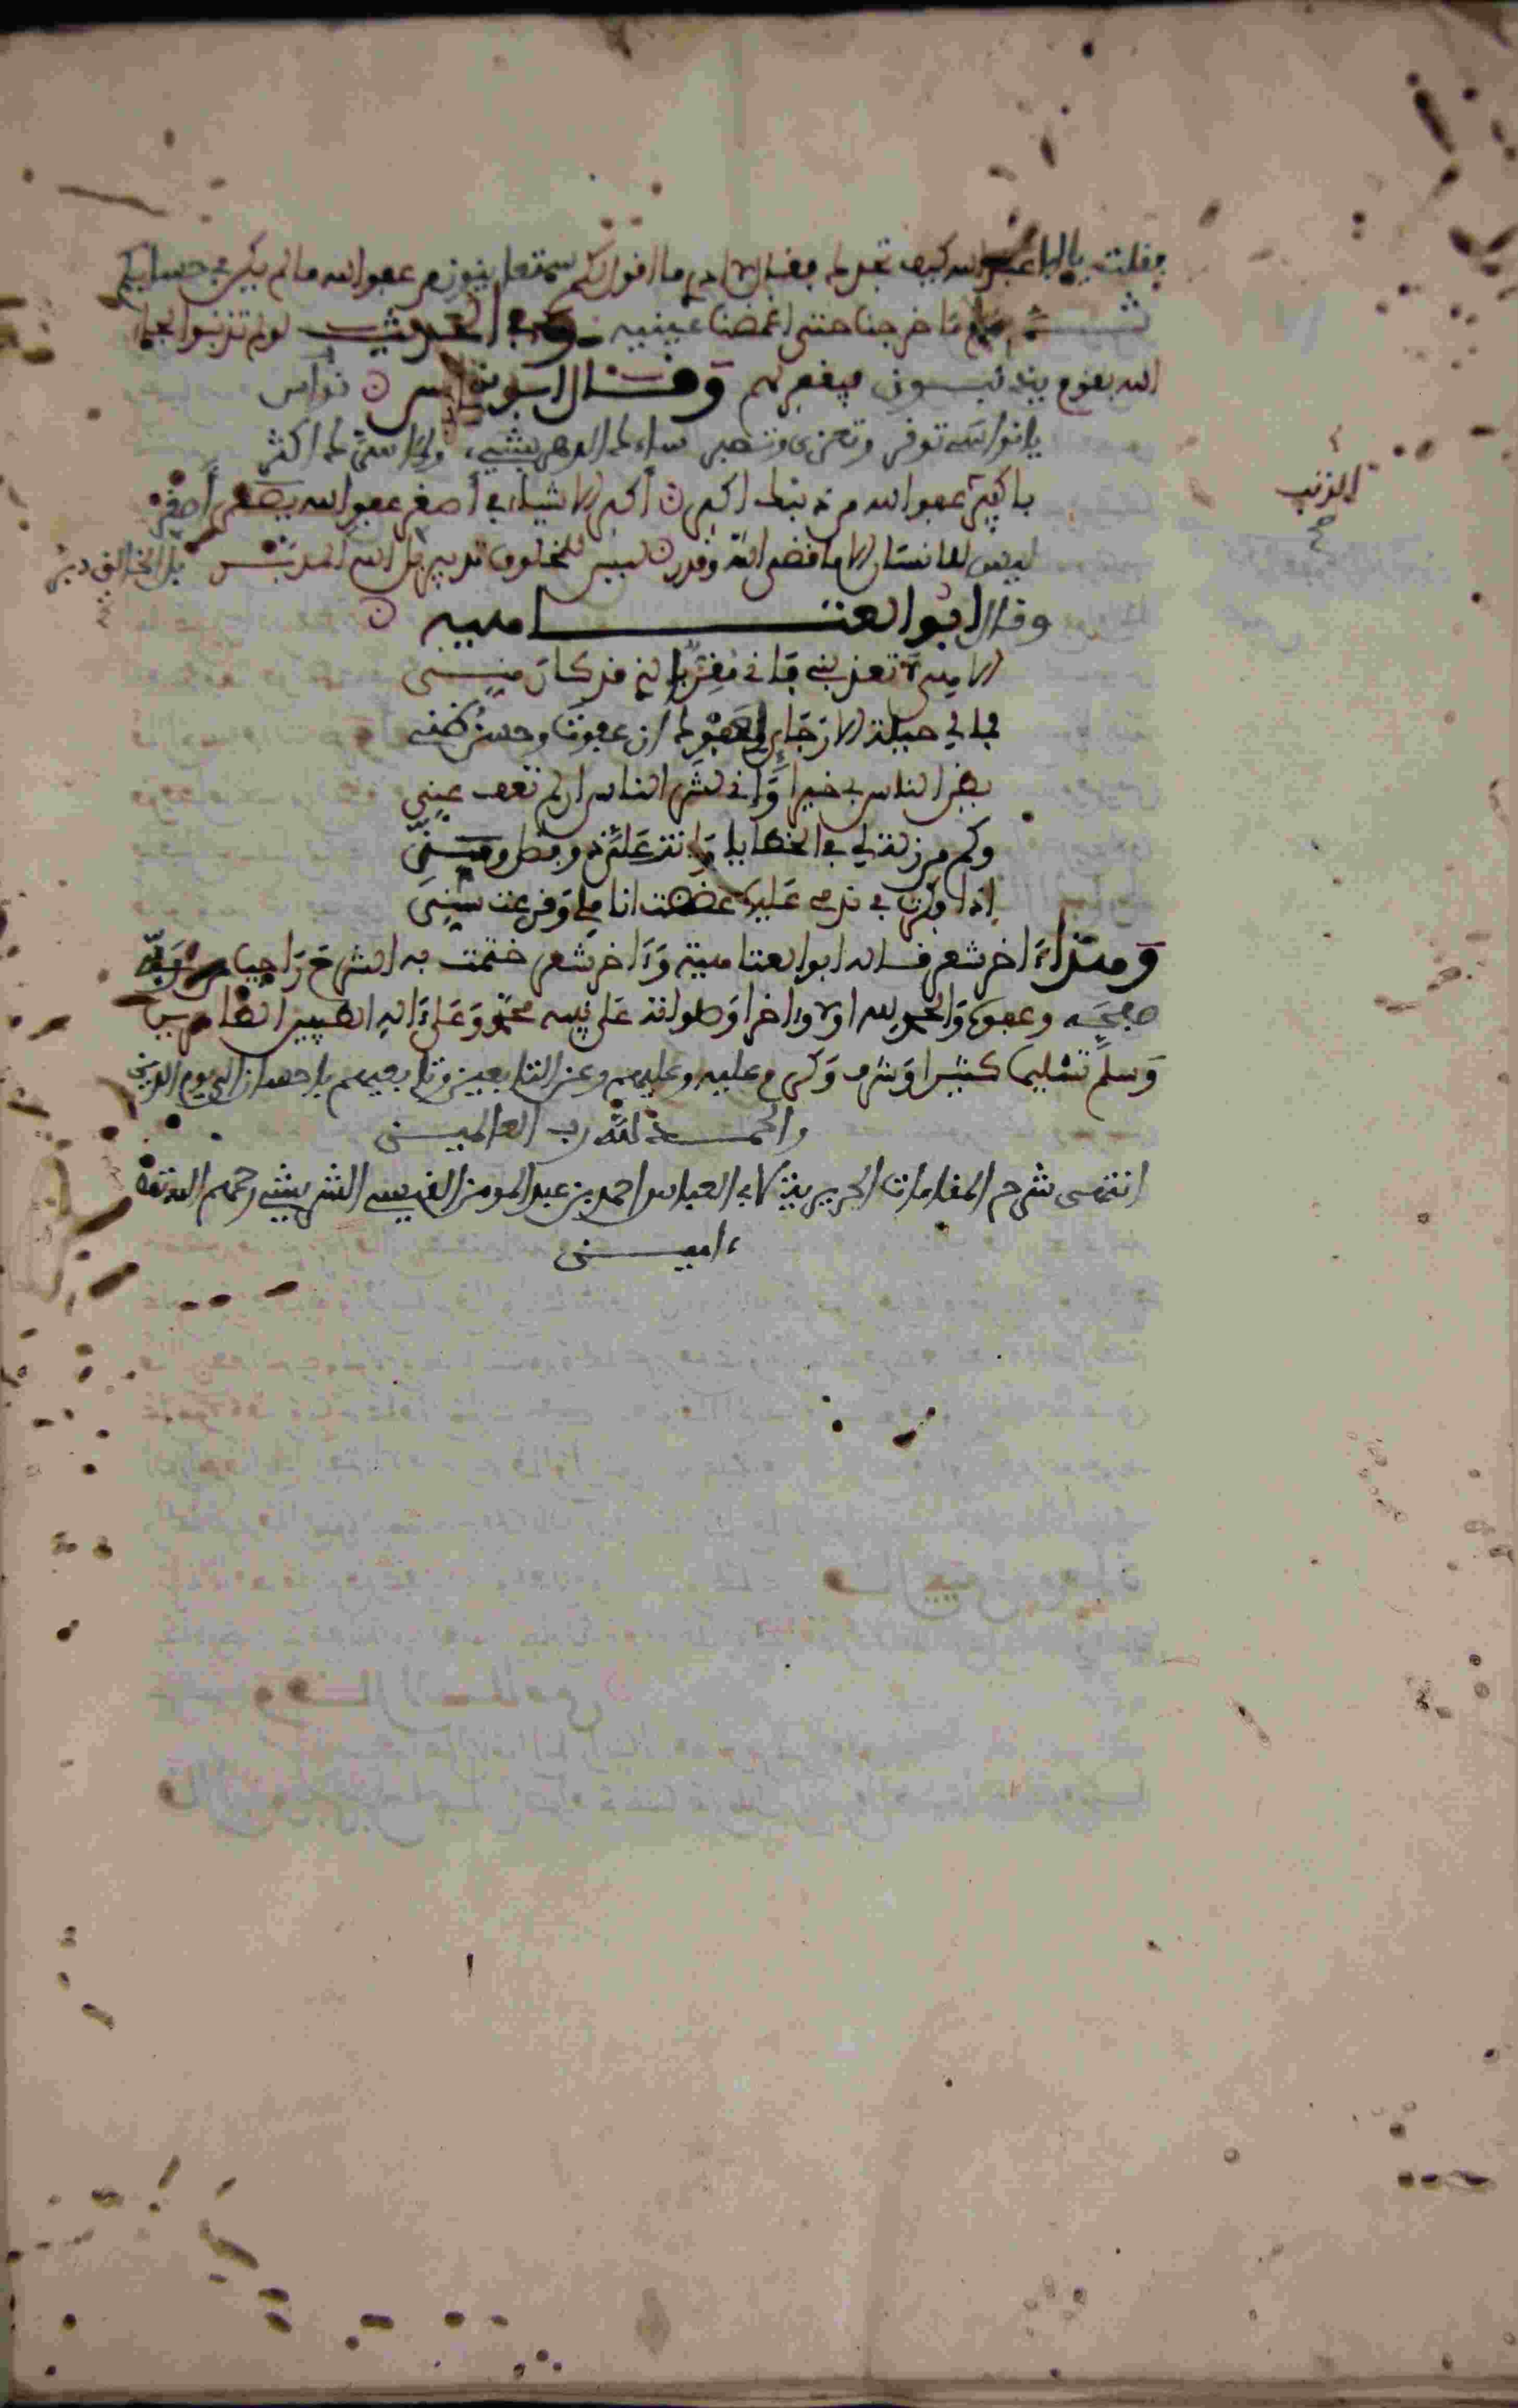 فقلت يا أبا عبد الله كيف تجدك فقال لا أدري ما أقول لكم ستعاينون من عفو الله ما لم يكن في حسابكم
ثم ما خرجنا حتى اغمضنا عينيه وفي الحديث لو لم تذنبوا لجاء
الله بقوم يذنبون فيغفر لهم وقال أبو نواس نواس
يا نواسي توقر وتعزى وتصبر ساءك الدهر بشيء ولما سرك اكثر
يا كبير عفو الله من ذنبك اكبر اكبر الاشياء في أصغر عفو الله يصغر أصغر
الذنب
صح
ليس للانسان الا ما قضى الله وقدر ليس للمخلوق تدبير بل الله المدبر بل الخالق دبر
وقال ابو العتاهيه
الاهي لا تعذبني فاني مقر بالذي قد كان مني
فما لي حيلة الا رجايي لعفوك ان عفوت وحسن ظني
يظن الناس بي خيرا واني لشر الناس ان لم تعف عني
وكم من زلة لي في الخطايا وانت علي ذو فضل ومن
اذا فكرت في ندمي عليها عضضت اناملي وقرعت سني
وهذا اخر شعر قاله ابو العتاهية وءاخر شعر ختمت به الشرح راجيا من الله
صفحه وعفوه والحمد لله اولا وءاخرا وصلواته على نبيه محمد وعلى ءاله الطيبين الطاهرين
وسلم تسليما كثيرا وشرف وكرم عليه وعليهم وعن التابعين وتابعيهم باحسان الى يوم الدين
والحمد لله رب العالمين
انتهى شرح المقامات الحريرية لابي العباس احمد بن عبد المومن القيسي الشريشي رحمهم الله تعلى
ءامين